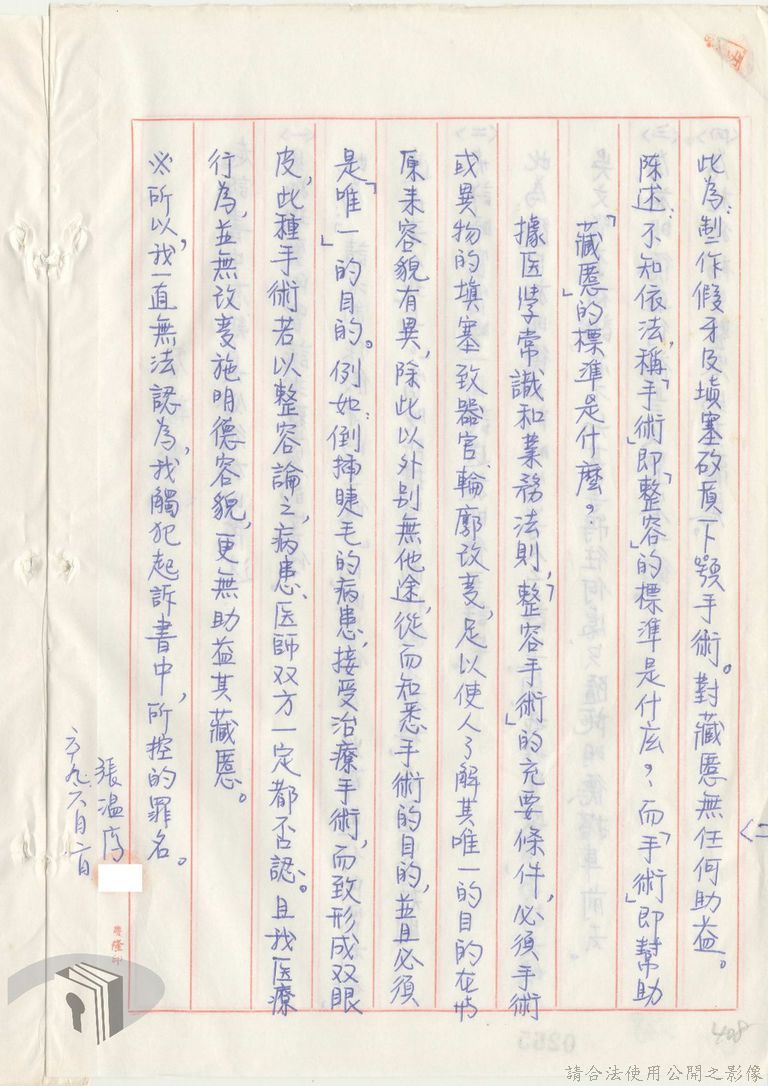 此為：制作假牙及填塞矽質下顎手術。對藏匿無任何助益。
陳述：不知依法，稱「手術」即「整容」的標準是什庅？而「手術」即幫助
「藏匿」的標準是什麼？
據医學常識和業務法則，「整容手術」的充要條件，必須手術
或異物的填塞致器官、輪廓改变，足以使人了解其唯一的目的在與
原來容貌有異，除此以外別無他途，從而知悉手術的目的，並且必須
是「唯一」的目的。例如：倒插睫毛的病患，接受治療手術，而致形成双眼
皮，此種手術若以整容論之，病患、医師双方一定都否認。且我医療
行為，並無改变施明德容貌，更無助益其藏匿。
※所以，我一直無法認為，我觸犯起訴書中，所控的罪名。
張温鷹
六九、六月、
408
0255
請合法使用公開之影像